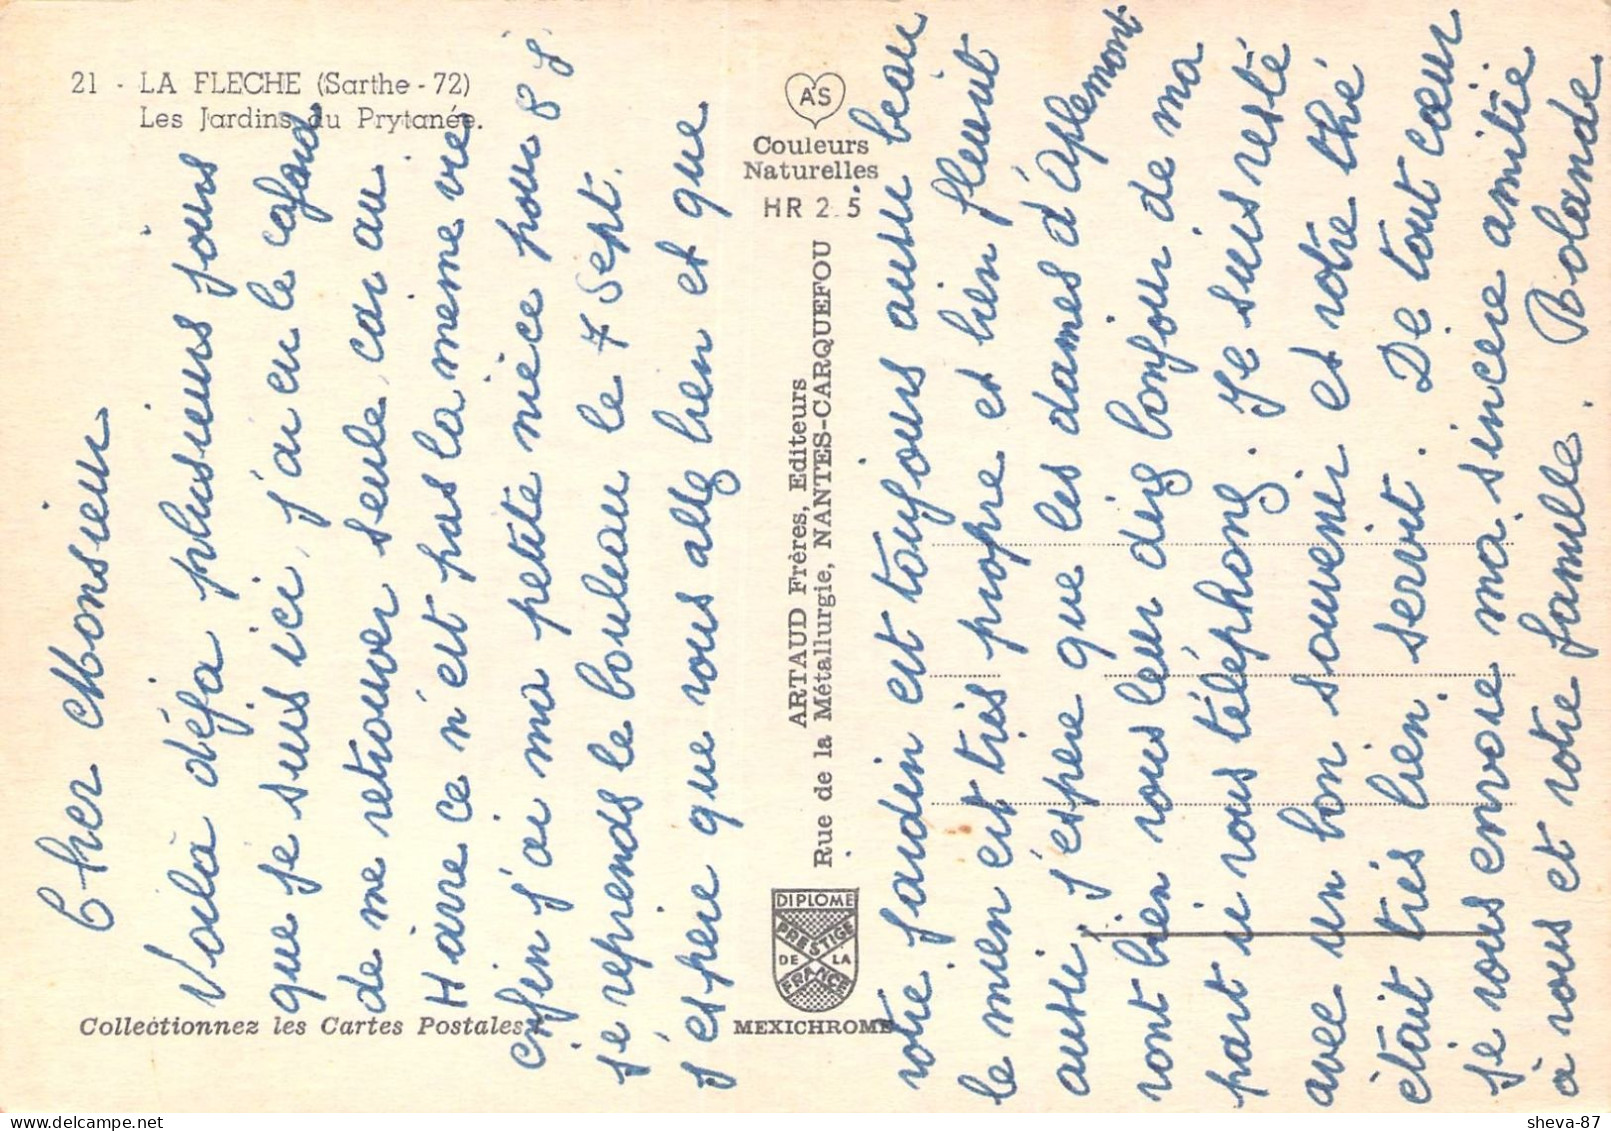 21 - LA FLECHE (Sarthe - 72)
Les Jardins du Prytanée.
Cher Monsieur
Voilà déjà plusieurs jours
que je suis ici, j'ai eu le cafard
de me retrouver seule car au
Havre ce n'est pas la meme vie
enfin j'ai ma petite nièce pour 8 j
je reprends le bouleau le 7 Sept.
j'espère que vous allez bien et que
Collectionnez les Cartes Postales
AS
Couleurs
Naturelles
HR 2 5
ARTAUD Frères, Editeurs
Rue de la Métallurgie, NANTES-CARQUEFOU
DIPLOME
PRESTIGE
DE LA
FRANCE
MEXICHROME
votre jardin est toujours aussi beau
le mien est très propre et bien fleurit
aussi, j'espère que les dames d'Aplemont
vont bien vous leur direz bonjour de ma
part si vous téléphonez. Je suis resté
avec un bon souvenir et votre thé
était très bien servit. De tout cœur
je vous envoie ma sincere amitie
à vous et votre famille. Rolande.
sheva-87